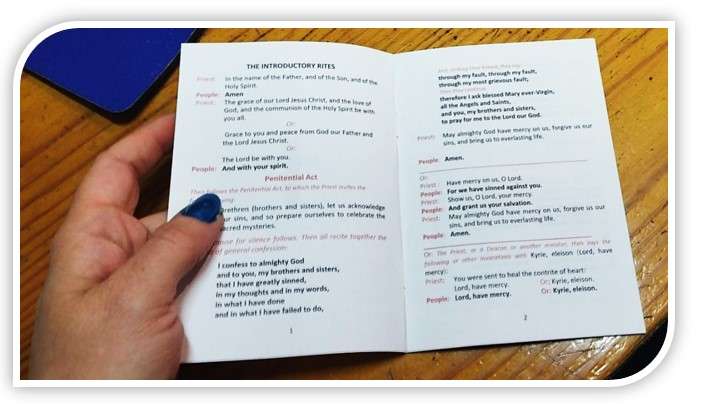 THE INTRODUCTORY RITES
Priest: In the name of the Father, and of the Son, and of the
Holy Spirit.
People: Amen
Priest: The grace of our Lord Jesus Christ, and the love of
God, and the communion of the Holy Spirit be with
you all.
Or:
Grace to you and peace from God our Father and
the Lord Jesus Christ.
Or:
The Lord be with you.
People: And with your spirit.
Penitential Act
Then follows the Penitential Act, to which the Priest invites the
Brethren (brothers and sisters), let us acknowledge
our sins, and so prepare ourselves to celebrate the
sacred mysteries.
pause for silence follows. Then all recite together the
of general confession:
I confess to almighty God
and to you, my brothers and sisters,
that I have greatly sinned,
in my thoughts and in my words,
in what I have done
and in what I have failed to do,
1
And, striking their breast, they say:
through my fault, through my fault,
through my most grievous fault;
therefore I ask blessed Mary ever-Virgin,
all the Angels and Saints,
and you, my brothers and sisters,
to pray for me to the Lord our God.
Priest: May almighty God have mercy on us, forgive us our
sins, and bring us to everlasting life.
People: Amen.
Or:
Priest: Have mercy on us, O Lord.
People: For we have sinned against you.
Priest: Show us, O Lord, your mercy.
People: And grant us your salvation.
Priest: May almighty God have mercy on us, forgive us our
sins, and bring us to everlasting life.
People: Amen.
Or: The Priest, or a Deacon or another minister, then says the
following or other invocations with Kyrie, eleison (Lord, have
mercy):
Priest: You were sent to heal the contrite of heart:
Lord, have mercy. Or: Kyrie, eleison.
People: Lord, have mercy. Or: Kyrie, eleison.
2